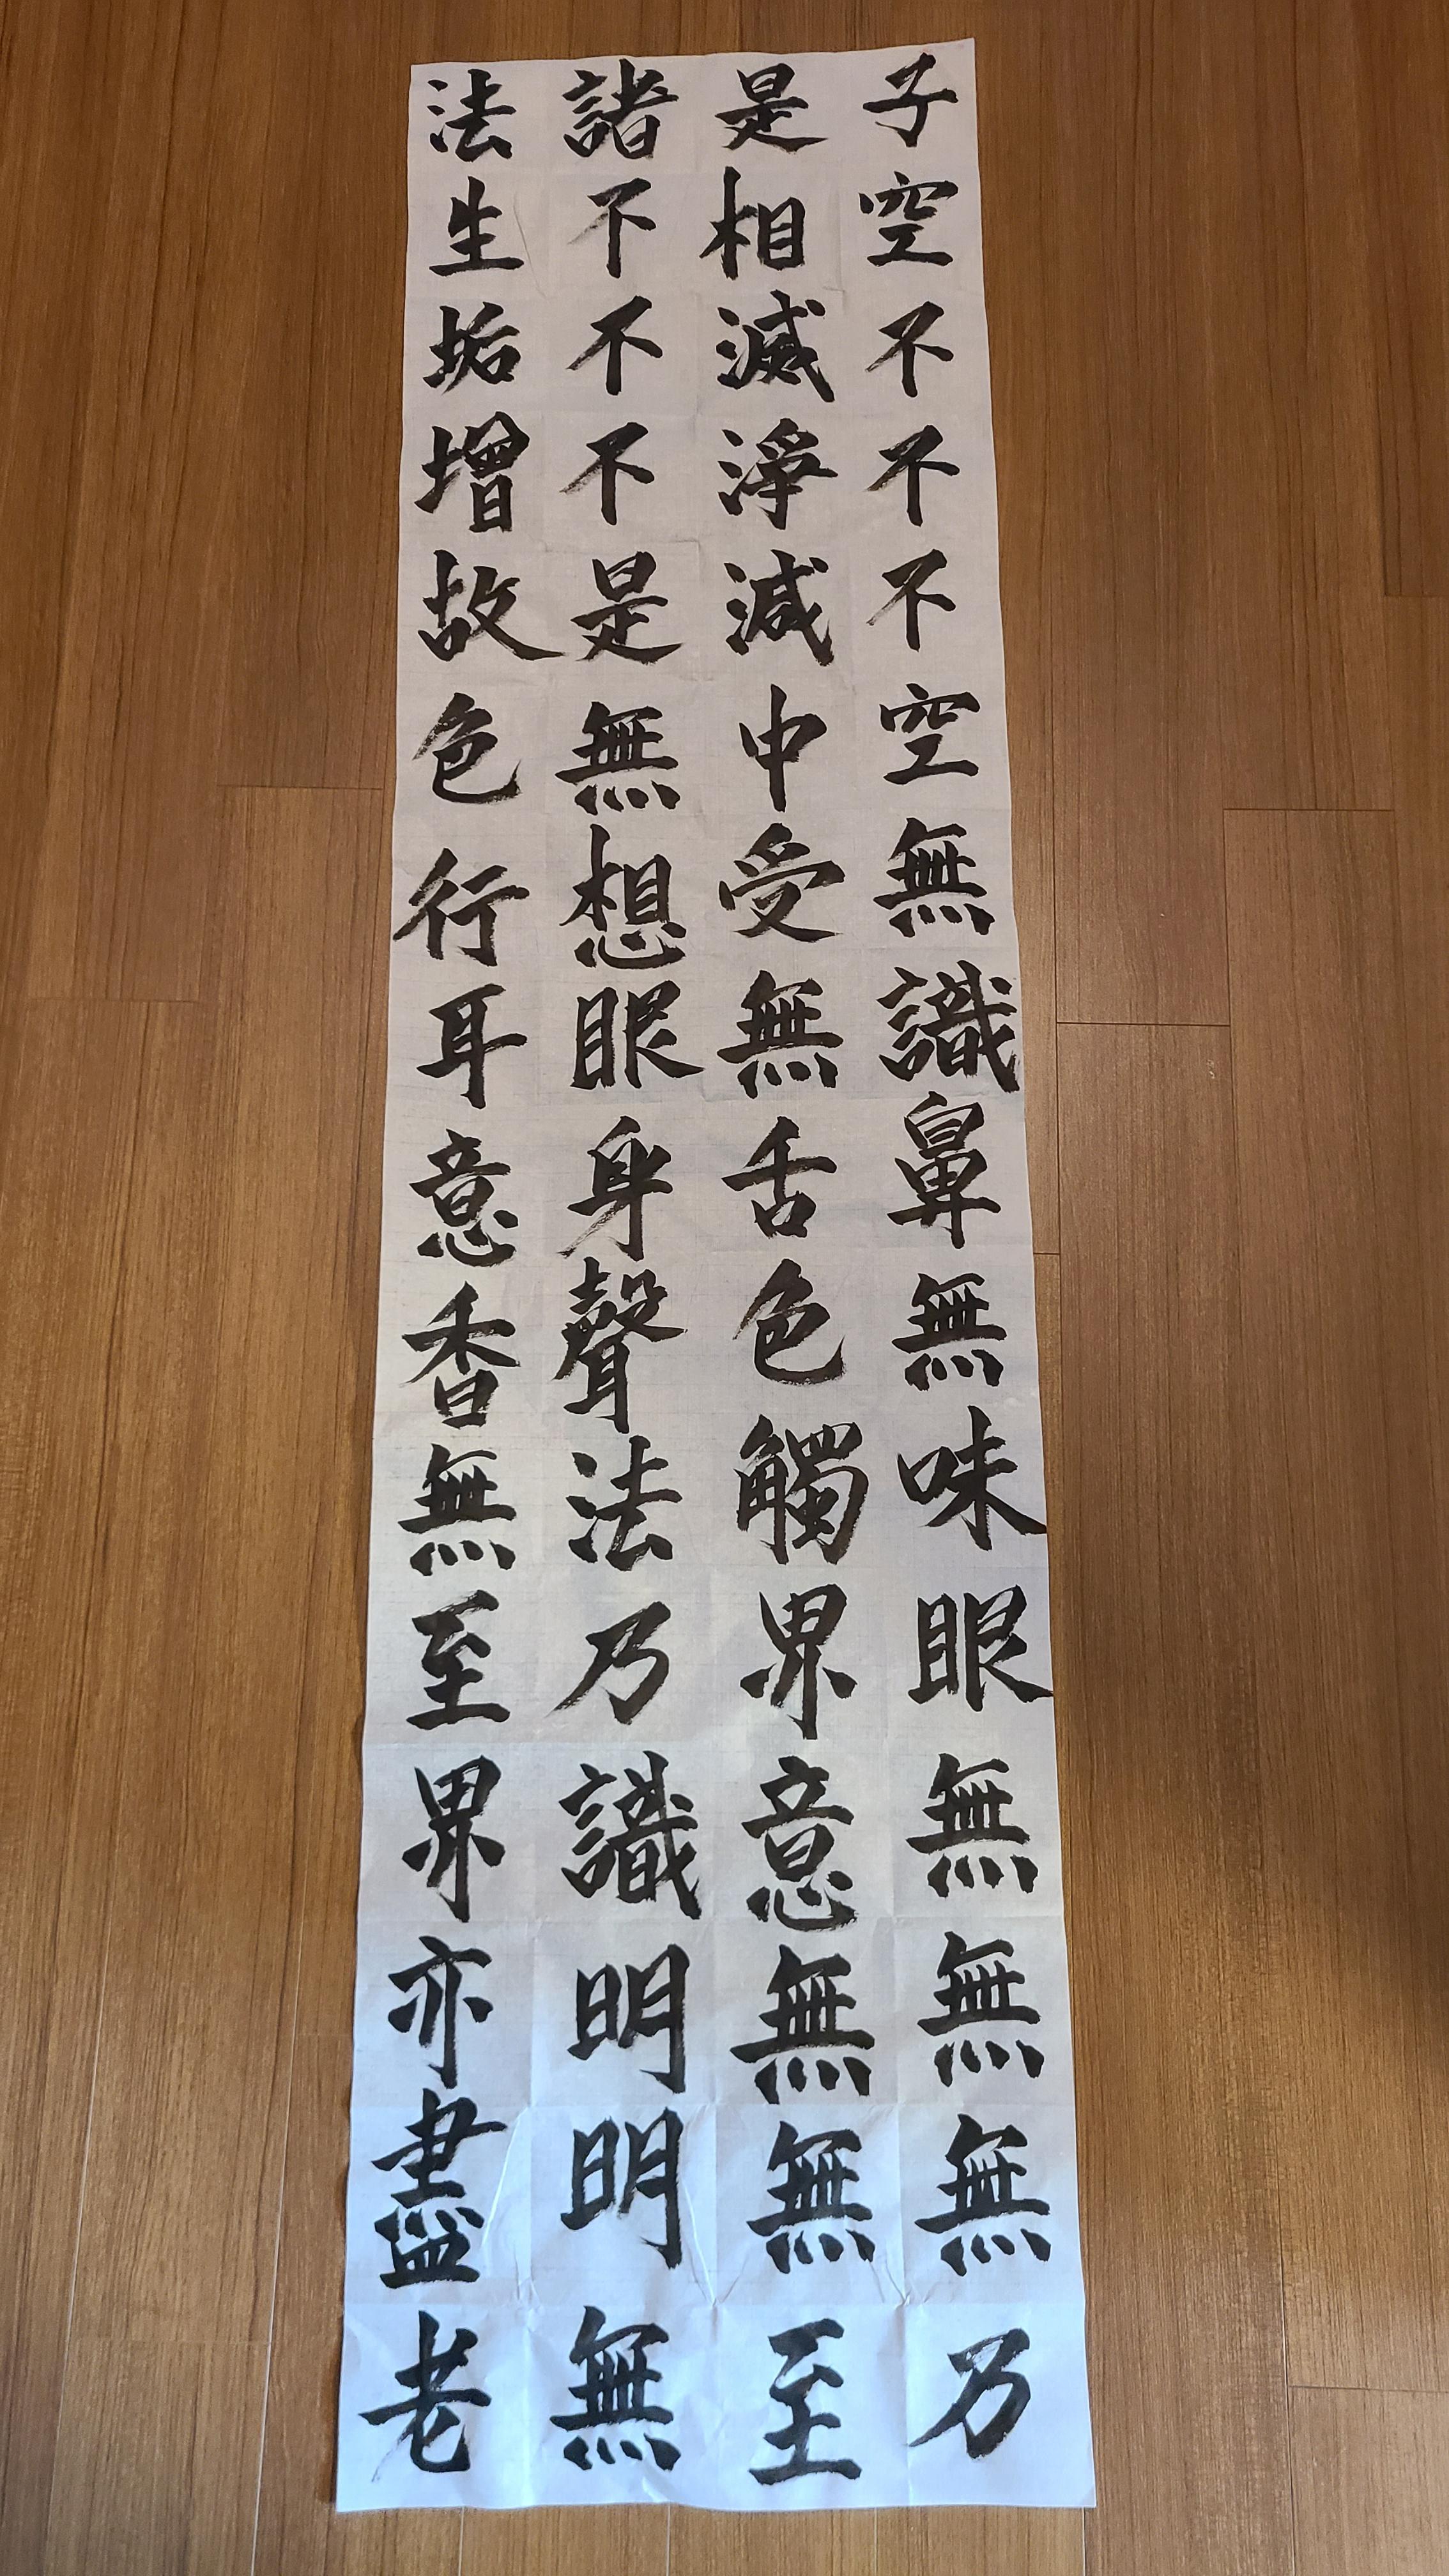 子是諸法
空相不生
不滅不垢
不淨不增
不減是故
空中無色
無受想行
識無眼耳
鼻舌身意
無色聲香
味觸法無
眼界乃至
無意識界
無無明亦
無無明盡
乃至無老